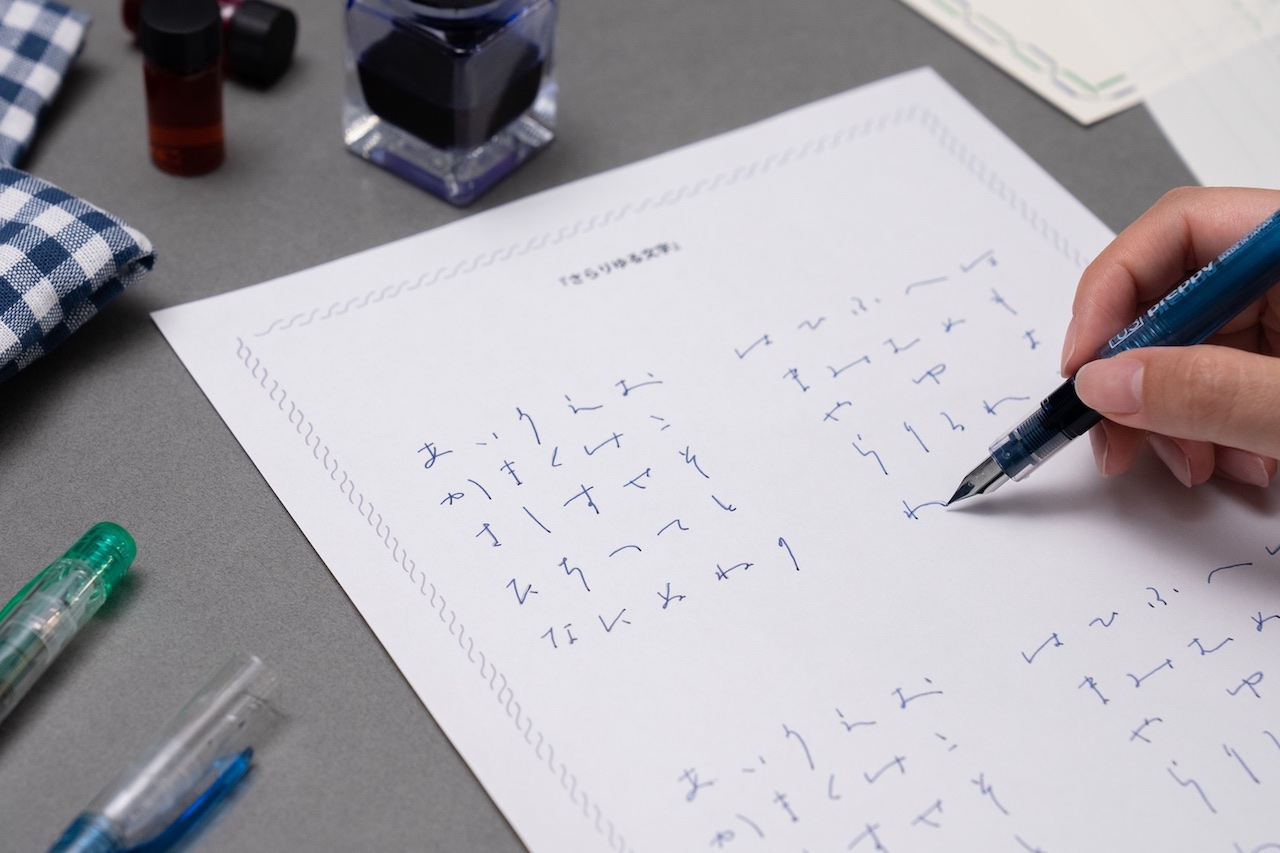 『さらりゆる文字』
あいうえお
かきくけこ
さしすせそ
たちつてと
なにぬねの
はひふへほ
まみむめも
や ゆ よ
らりるれ
わ
preppy
あいうえお
かきくけこ
すせそ
はひふへ
まみむめ
や ゆ
らり